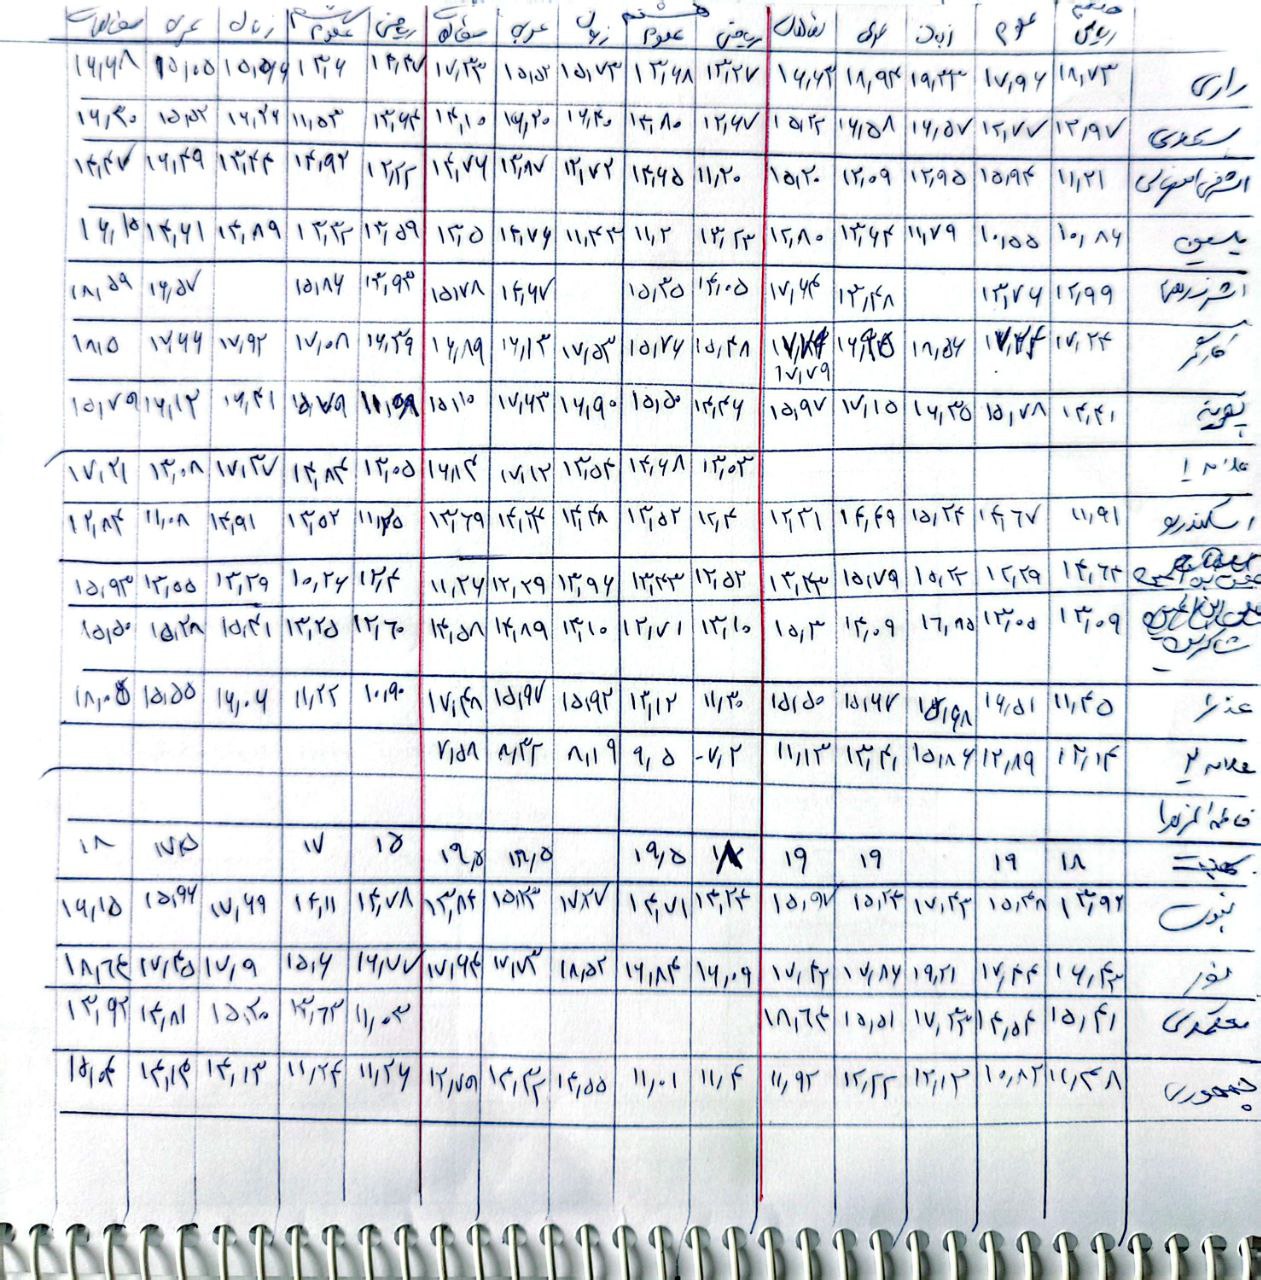 هفتم هشتم
ریاضی علوم زبان عربی مطالعات ریاضی علوم زبان عربی مطالعات ریاضی علوم زبان عربی مطالعات
رازی ۱۸,۷۳ ۱۷,۹۶ ۱۹,۳۳ ۱۸,۹۴ ۱۶,۴۳ ۱۳,۲۷ ۱۳,۶۸ ۱۵,۷۳ ۱۵,۵۲ ۱۷,۳۳ ۱۴,۴۷ ۱۳,۶ ۱۵,۵۶ ۱۵,۰۵ ۱۶,۶۸
۱۲,۹۷ ۱۲,۷۷ ۱۶,۵۷ ۱۶,۵۸ ۱۵,۲۲ ۱۲,۶۷ ۱۳,۸۰ ۱۶,۴۰ ۱۶,۲۰ ۱۴,۱۰ ۱۳,۶۴ ۱۱,۵۳ ۱۶,۲۶ ۱۵,۵۲ ۱۶,۳۰
اشرفی اصفهانی ۱۱,۲۱ ۱۵,۹۴ ۱۲,۹۵ ۱۲,۰۹ ۱۵,۲۰ ۱۱,۲۰ ۱۴,۶۵ ۱۲,۷۲ ۱۳,۸۷ ۱۴,۷۶ ۱۲,۲۲ ۱۴,۹۲ ۱۳,۴۴ ۱۶,۴۹ ۱۴,۴۷
یاسین ۱۰,۸۶ ۱۰,۵۵ ۱۱,۷۹ ۱۳,۶۴ ۱۲,۸۰ ۱۳,۲۳ ۱۱,۲ ۱۱,۴۳ ۱۴,۷۶ ۱۳,۵ ۱۳,۵۹ ۱۳,۳۲ ۱۴,۸۹ ۱۴,۶۱ ۱۶,۱۵
۱۲,۹۹ ۱۳,۷۶ ۱۳,۴۸ ۱۷,۶۴ ۱۴,۰۵ ۱۵,۳۵ ۱۴,۶۷ ۱۵,۷۸ ۱۳,۹۳ ۱۵,۸۶ ۱۶,۵۷ ۱۸,۵۹
کارگر ۱۷,۲۴ ۱۸,۵۶ ۱۷,۷۹ ۱۵,۴۸ ۱۵,۷۶ ۱۷,۵۳ ۱۶,۱۳ ۱۶,۸۹ ۱۶,۳۹ ۱۷,۰۸ ۱۷,۹۲ ۱۷,۶۶ ۱۸,۵
۱۴,۴۱ ۱۵,۷۸ ۱۶,۳۵ ۱۷,۱۵ ۱۵,۹۷ ۱۴,۴۶ ۱۵,۵۰ ۱۶,۹۰ ۱۷,۶۳ ۱۵,۱۰ ۱۵,۷۹ ۱۶,۴۱ ۱۶,۱۲ ۱۵,۷۹
علامه ۱ ۱۳,۰۳ ۱۴,۶۸ ۱۳,۵۴ ۱۷,۱۲ ۱۶,۱۴ ۱۳,۰۵ ۱۴,۸۴ ۱۷,۳۷ ۱۳,۰۸ ۱۷,۲۱
اسکندرلو ۱۱,۹۱ ۱۴,۶۷ ۱۵,۲۴ ۱۴,۴۹ ۱۲,۳۱ ۱۲,۴ ۱۳,۵۲ ۱۴,۴۸ ۱۴,۲۴ ۱۳,۶۹ ۱۱,۲۵ ۱۳,۵۲ ۱۴,۹۱ ۱۱,۰۸ ۱۲,۸۴
۱۴,۶۴ ۱۲,۲۹ ۱۵,۲۲ ۱۵,۷۹ ۱۳,۴۳ ۱۲,۵۲ ۱۳,۴۳ ۱۳,۹۶ ۱۲,۲۹ ۱۱,۲۶ ۱۲,۴ ۱۰,۲۶ ۱۳,۲۹ ۱۳,۵۵ ۱۵,۹۳
۱۳,۰۹ ۱۳,۰۵ ۱۶,۸۵ ۱۴,۰۹ ۱۵,۳ ۱۳,۱۰ ۱۲,۷۱ ۱۴,۱۰ ۱۴,۸۹ ۱۴,۵۸ ۱۲,۶۰ ۱۳,۲۵ ۱۵,۴۱ ۱۵,۲۸ ۱۵,۵۰
شاکرین
۱۱,۴۵ ۱۴,۵۱ ۱۵,۶۸ ۱۵,۶۷ ۱۵,۵۰ ۱۱,۳۰ ۱۳,۱۲ ۱۵,۹۲ ۱۵,۹۷ ۱۷,۴۸ ۱۰,۹۰ ۱۱,۲۲ ۱۶,۰۶ ۱۵,۵۵ ۱۸,۰۵
علامه ۲ ۱۲,۱۴ ۱۲,۸۹ ۱۵,۸۶ ۱۳,۴۱ ۱۱,۱۳ ۰۷,۲ ۹,۵ ۸,۱۹ ۸,۳۲ ۷,۵۸
فاطمه الزهرا
۱۸ ۱۹ ۱۹ ۱۹ ۱۸ ۱۹,۵ ۱۸,۵ ۱۹,۵ ۱۵ ۱۷ ۱۷,۵ ۱۸
نبوت ۱۳,۹۲ ۱۵,۴۸ ۱۷,۴۳ ۱۵,۲۴ ۱۵,۹۷ ۱۴,۲۴ ۱۴,۷۱ ۱۷,۲۷ ۱۵,۲۳ ۱۳,۸۴ ۱۴,۷۸ ۱۴,۱۱ ۱۷,۶۹ ۱۵,۹۴ ۱۶,۱۵
نور ۱۶,۴۳ ۱۷,۴۴ ۱۹,۲۱ ۱۷,۸۶ ۱۷,۴۲ ۱۶,۰۹ ۱۶,۸۴ ۱۸,۵۲ ۱۷,۷۳ ۱۷,۶۴ ۱۶,۷۷ ۱۵,۶ ۱۷,۹ ۱۷,۴۵ ۱۸,۶۴
۱۵,۴۱ ۱۴,۵۴ ۱۷,۲۳ ۱۵,۵۱ ۱۸,۶۴ ۱۱,۰۳ ۱۳,۶۳ ۱۵,۲۰ ۱۴,۸۱ ۱۳,۹۲
جمهوری ۱۱,۴۸ ۱۰,۸۲ ۱۲,۱۳ ۱۲,۲۲ ۱۱,۹۲ ۱۱,۴ ۱۱,۰۱ ۱۴,۵۵ ۱۴,۳۲ ۱۲,۷۹ ۱۱,۲۶ ۱۱,۲۴ ۱۴,۱۳ ۱۴,۱۴ ۱۵,۰۴